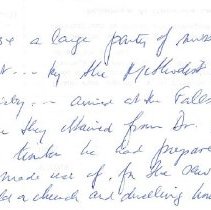 a large party of
by the Methodist
arrived at the Falls
they obtained from Dr.
timber he had prepared
made use of. In the
a church and dwelling hou